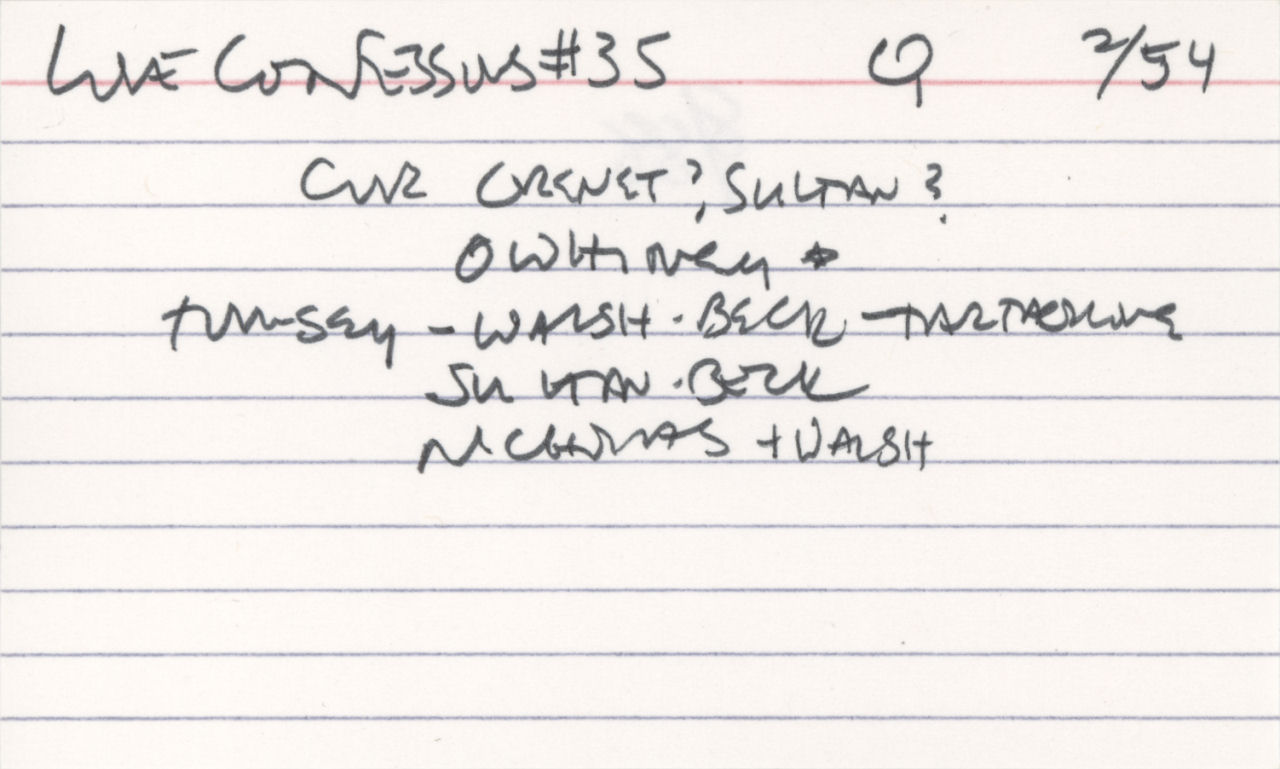 LOVE CONFESSIONS #35 Q 2/54
CVR GRENET?, SULTAN?
O WHITNEY *
TUMSEY - WALSH · BECK - TARTAGLIONE
SULTAN · BECK
NICHOLAS + WALSH